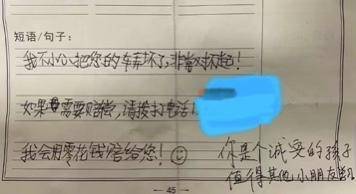 短语/句子：
我不小心把您的车弄坏了,非常对不起！
如果需要赔偿,请拨打电话1
我会用零花钱赔给您！
你是个诚实的孩子
值得其他小朋友学习
— 45 —